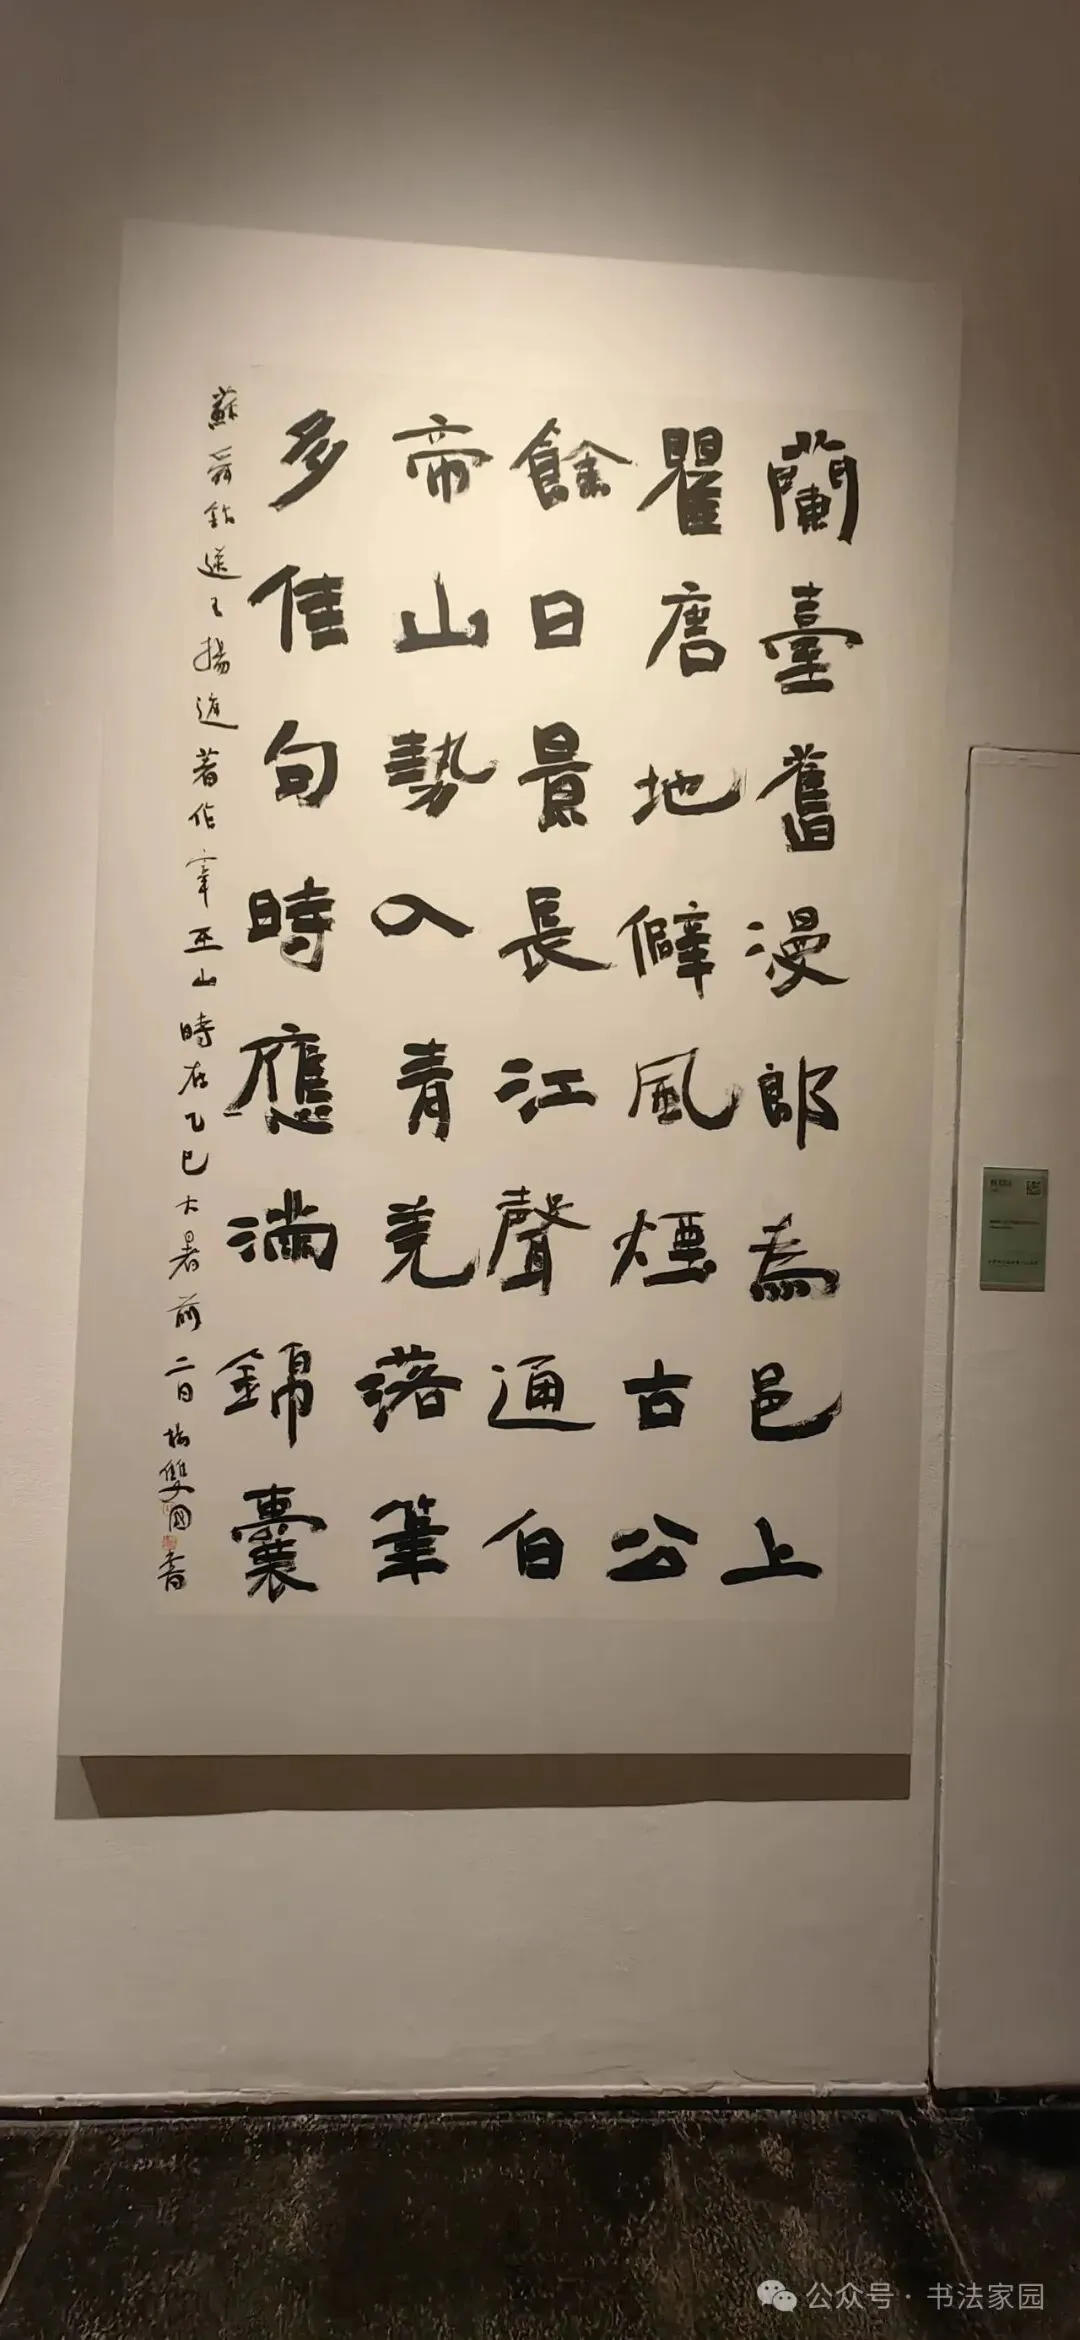 蘭臺舊漫郎為邑上
瞿唐地僻風煙古公
餘日景長江聲通白
帝山勢入青羌落筆
多佳句時應滿錦囊
蘇舜欽送王揚庭著作宰巫山時在乙巳大暑前二日楊雙國書
公众号·书法家园